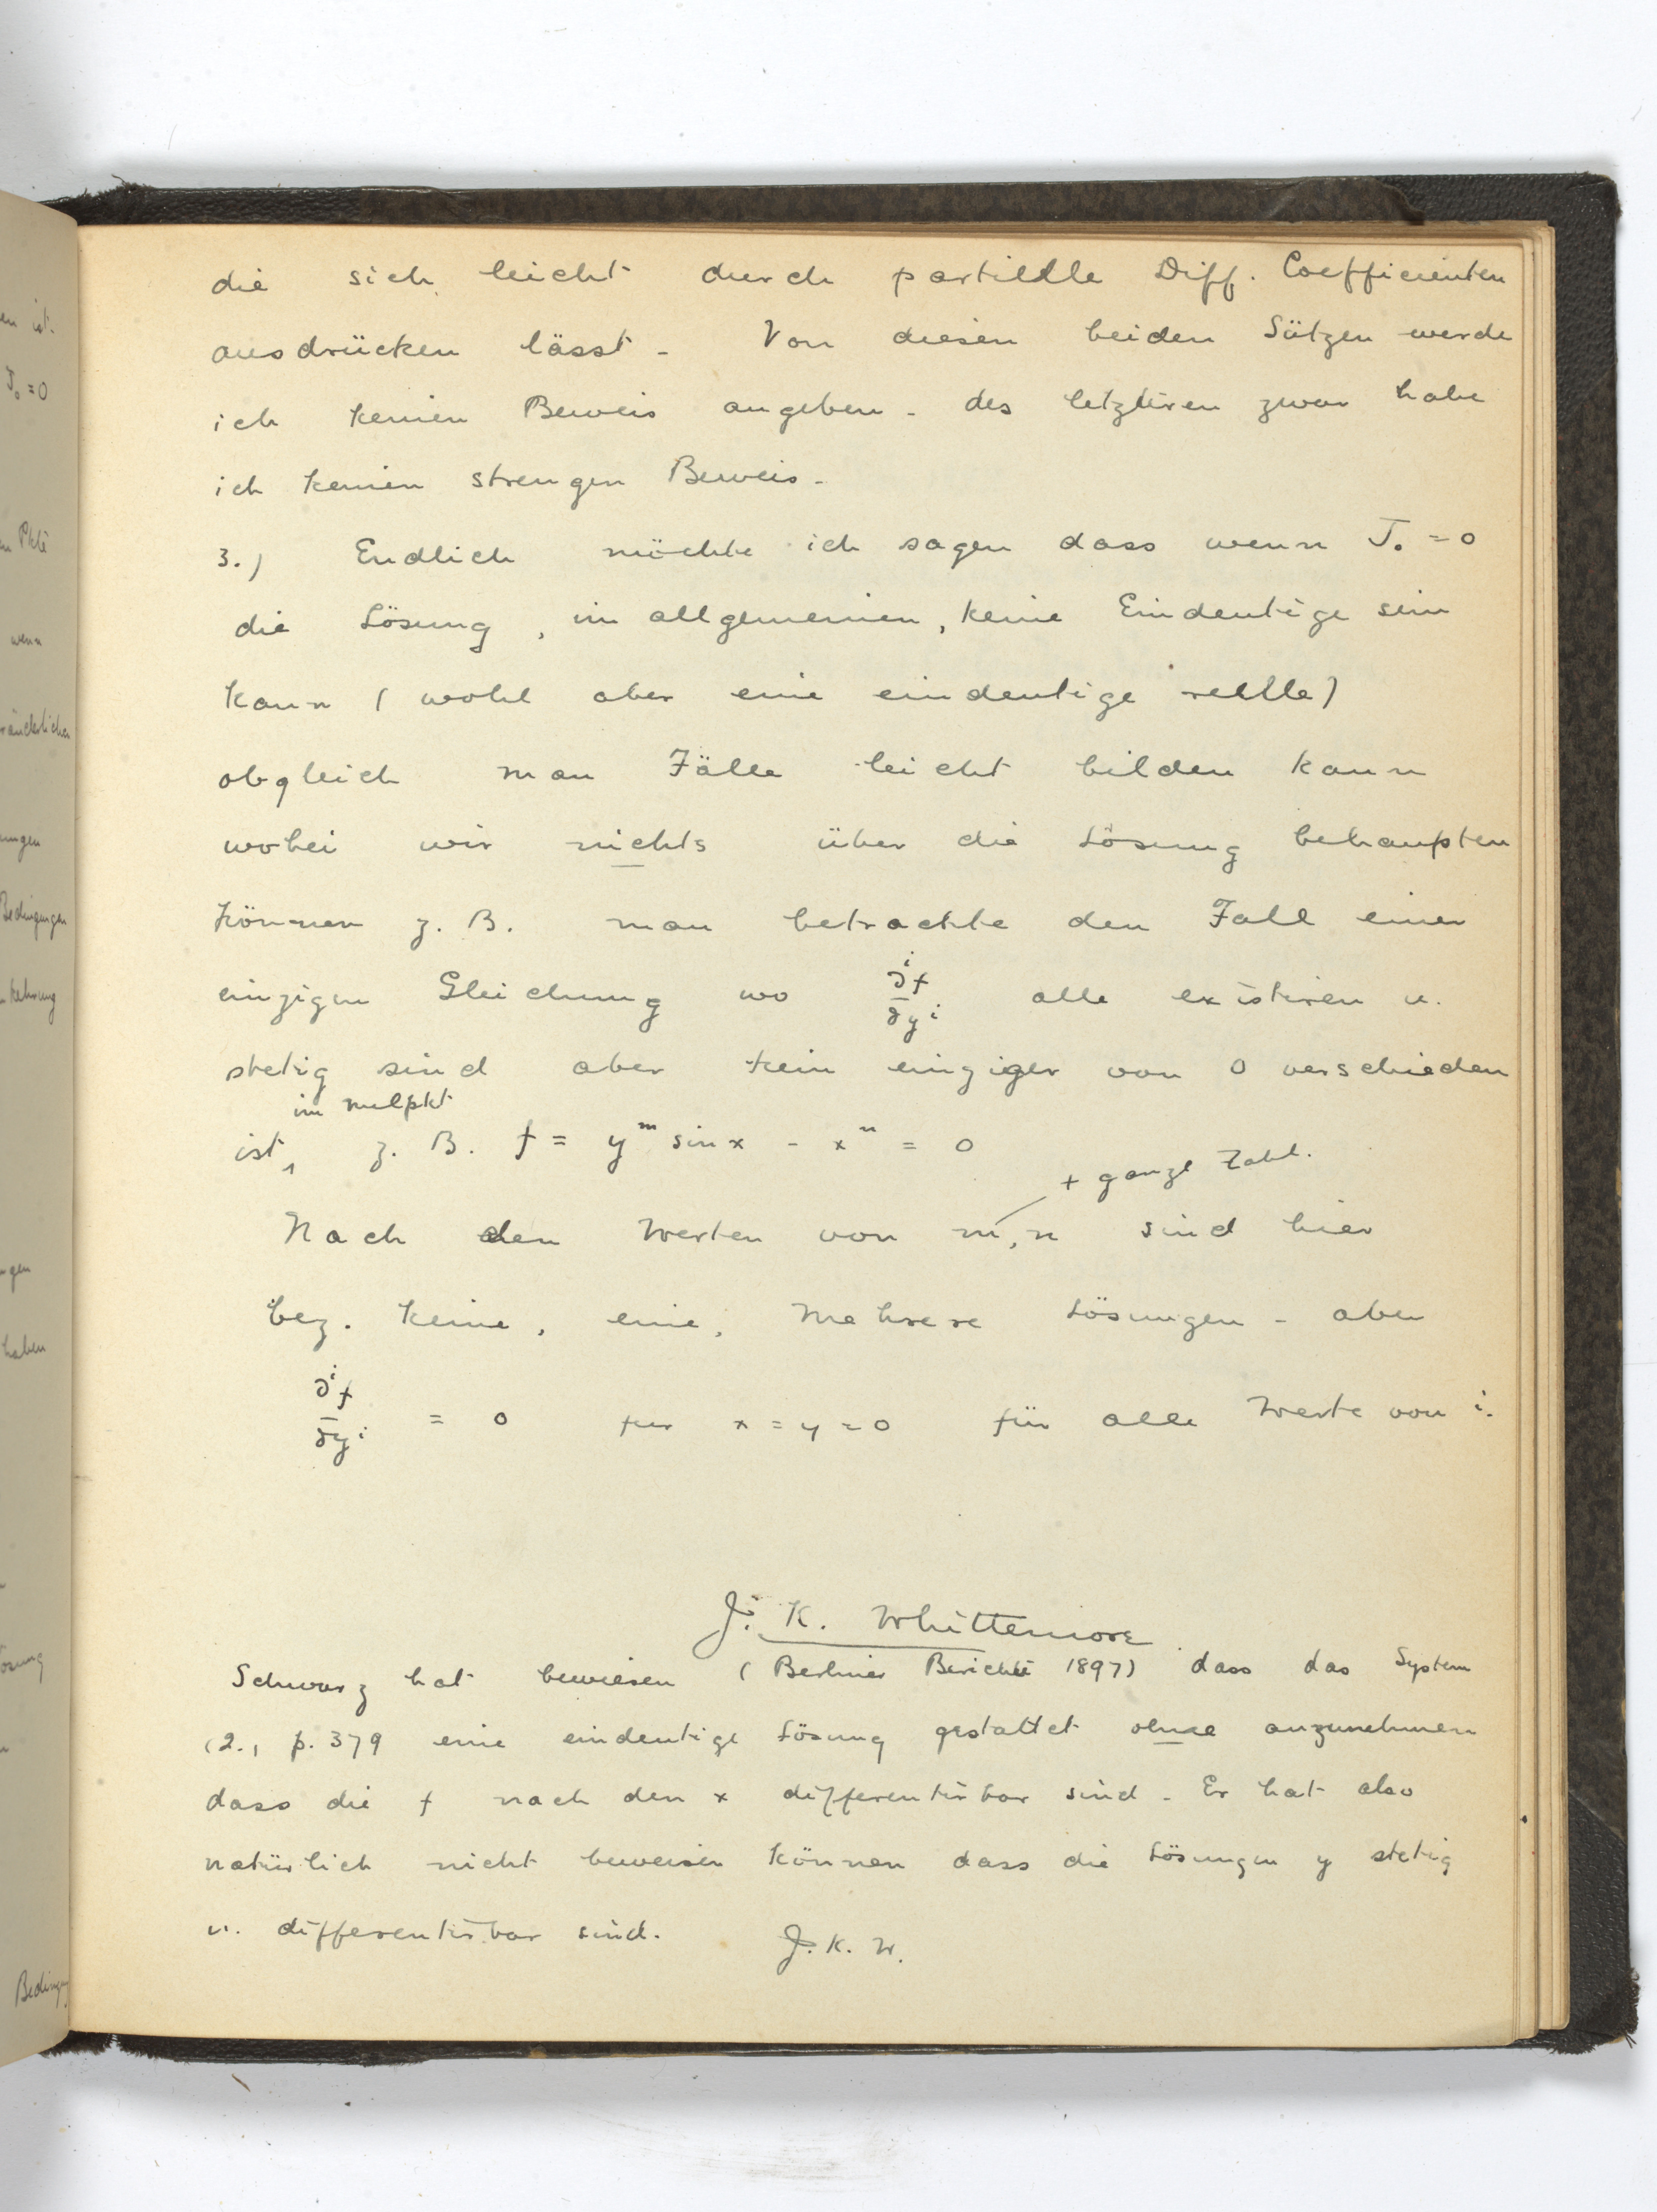 die sich leicht durch partielle Diff. Coefficienten
ausdrücken lässt - Von diesen beiden Sätzen werde
ich keinen Beweis angeben - des letzteren zwar habe
ich keinen strengen Beweis -
3.) Endlich möchte ich sagen dass wenn J₀ = 0
die Lösung, im allgemeinen, keine Eindeutige sein
kann (wohl aber eine eindeutige reelle)
obgleich man Fälle leicht bilden kann
wobei wir nichts über die Lösung behaupten
können z. B. man betrachte den Fall einer
einzigen Gleichung wo ∂ⁱf/∂yⁱ alle existiren u.
stetig sind aber kein einziger von 0 verschieden
im Nullpkt
ist, z. B. f = yᵐ sin x - xⁿ = 0
+ ganze Zahl.
Nach den Werten von m, n sind hier
bez. keine, eine, mehrere Lösungen - aber
∂ⁱf/∂yⁱ = 0 für x = y = 0 für alle Werte von i.
J. K. Whittemore
Schwarz hat bewiesen (Berliner Berichte 1897) dass das System
(2., p. 379 eine eindeutige Lösung gestattet ohne anzunehmen
dass die f nach den x differentirbar sind - Er hat also
natürlich nicht beweisen können dass die Lösungen y stetig
u. differentirbar sind. J. K. W.
en ist.
J₀ = 0
Pkte
wenn
ränderlichen
ungen
Bedingungen
kehrung
gen
haben
ösung
Bedingung